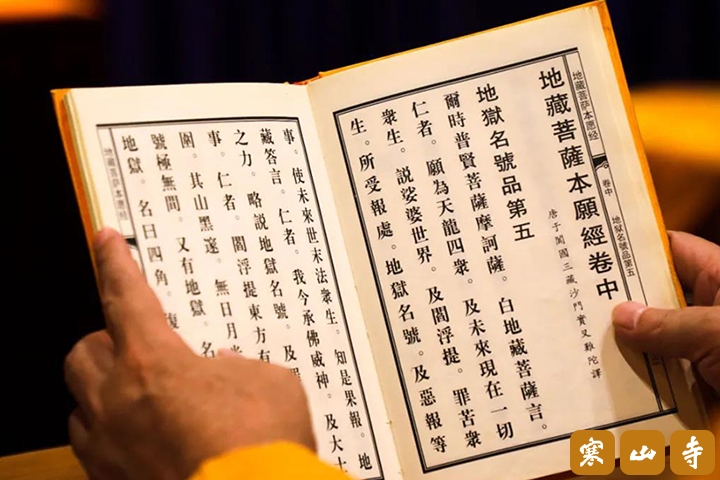 地藏菩萨本愿经 卷中 地獄名號品第五
地藏菩薩本願經卷中
唐于闐國三藏沙門實叉難陀譯
地獄名號品第五
爾時普賢菩薩摩訶薩。白地藏菩薩言。
仁者。願為天龍四衆。及未來現在一切
衆生。說娑婆世界。及閻浮提。罪苦衆
生。所受報處。地獄名號。及惡報等
事。使未來世末法衆生。知是果報。地
藏答言。仁者。我今承佛威神。及大士
之力。略說地獄名號。及
事。仁者。閻浮提東方有
圍。其山黑邃。無日月
號極無間。又有地獄。名
地獄。名曰四角。復
地藏菩萨本愿经
寒山寺